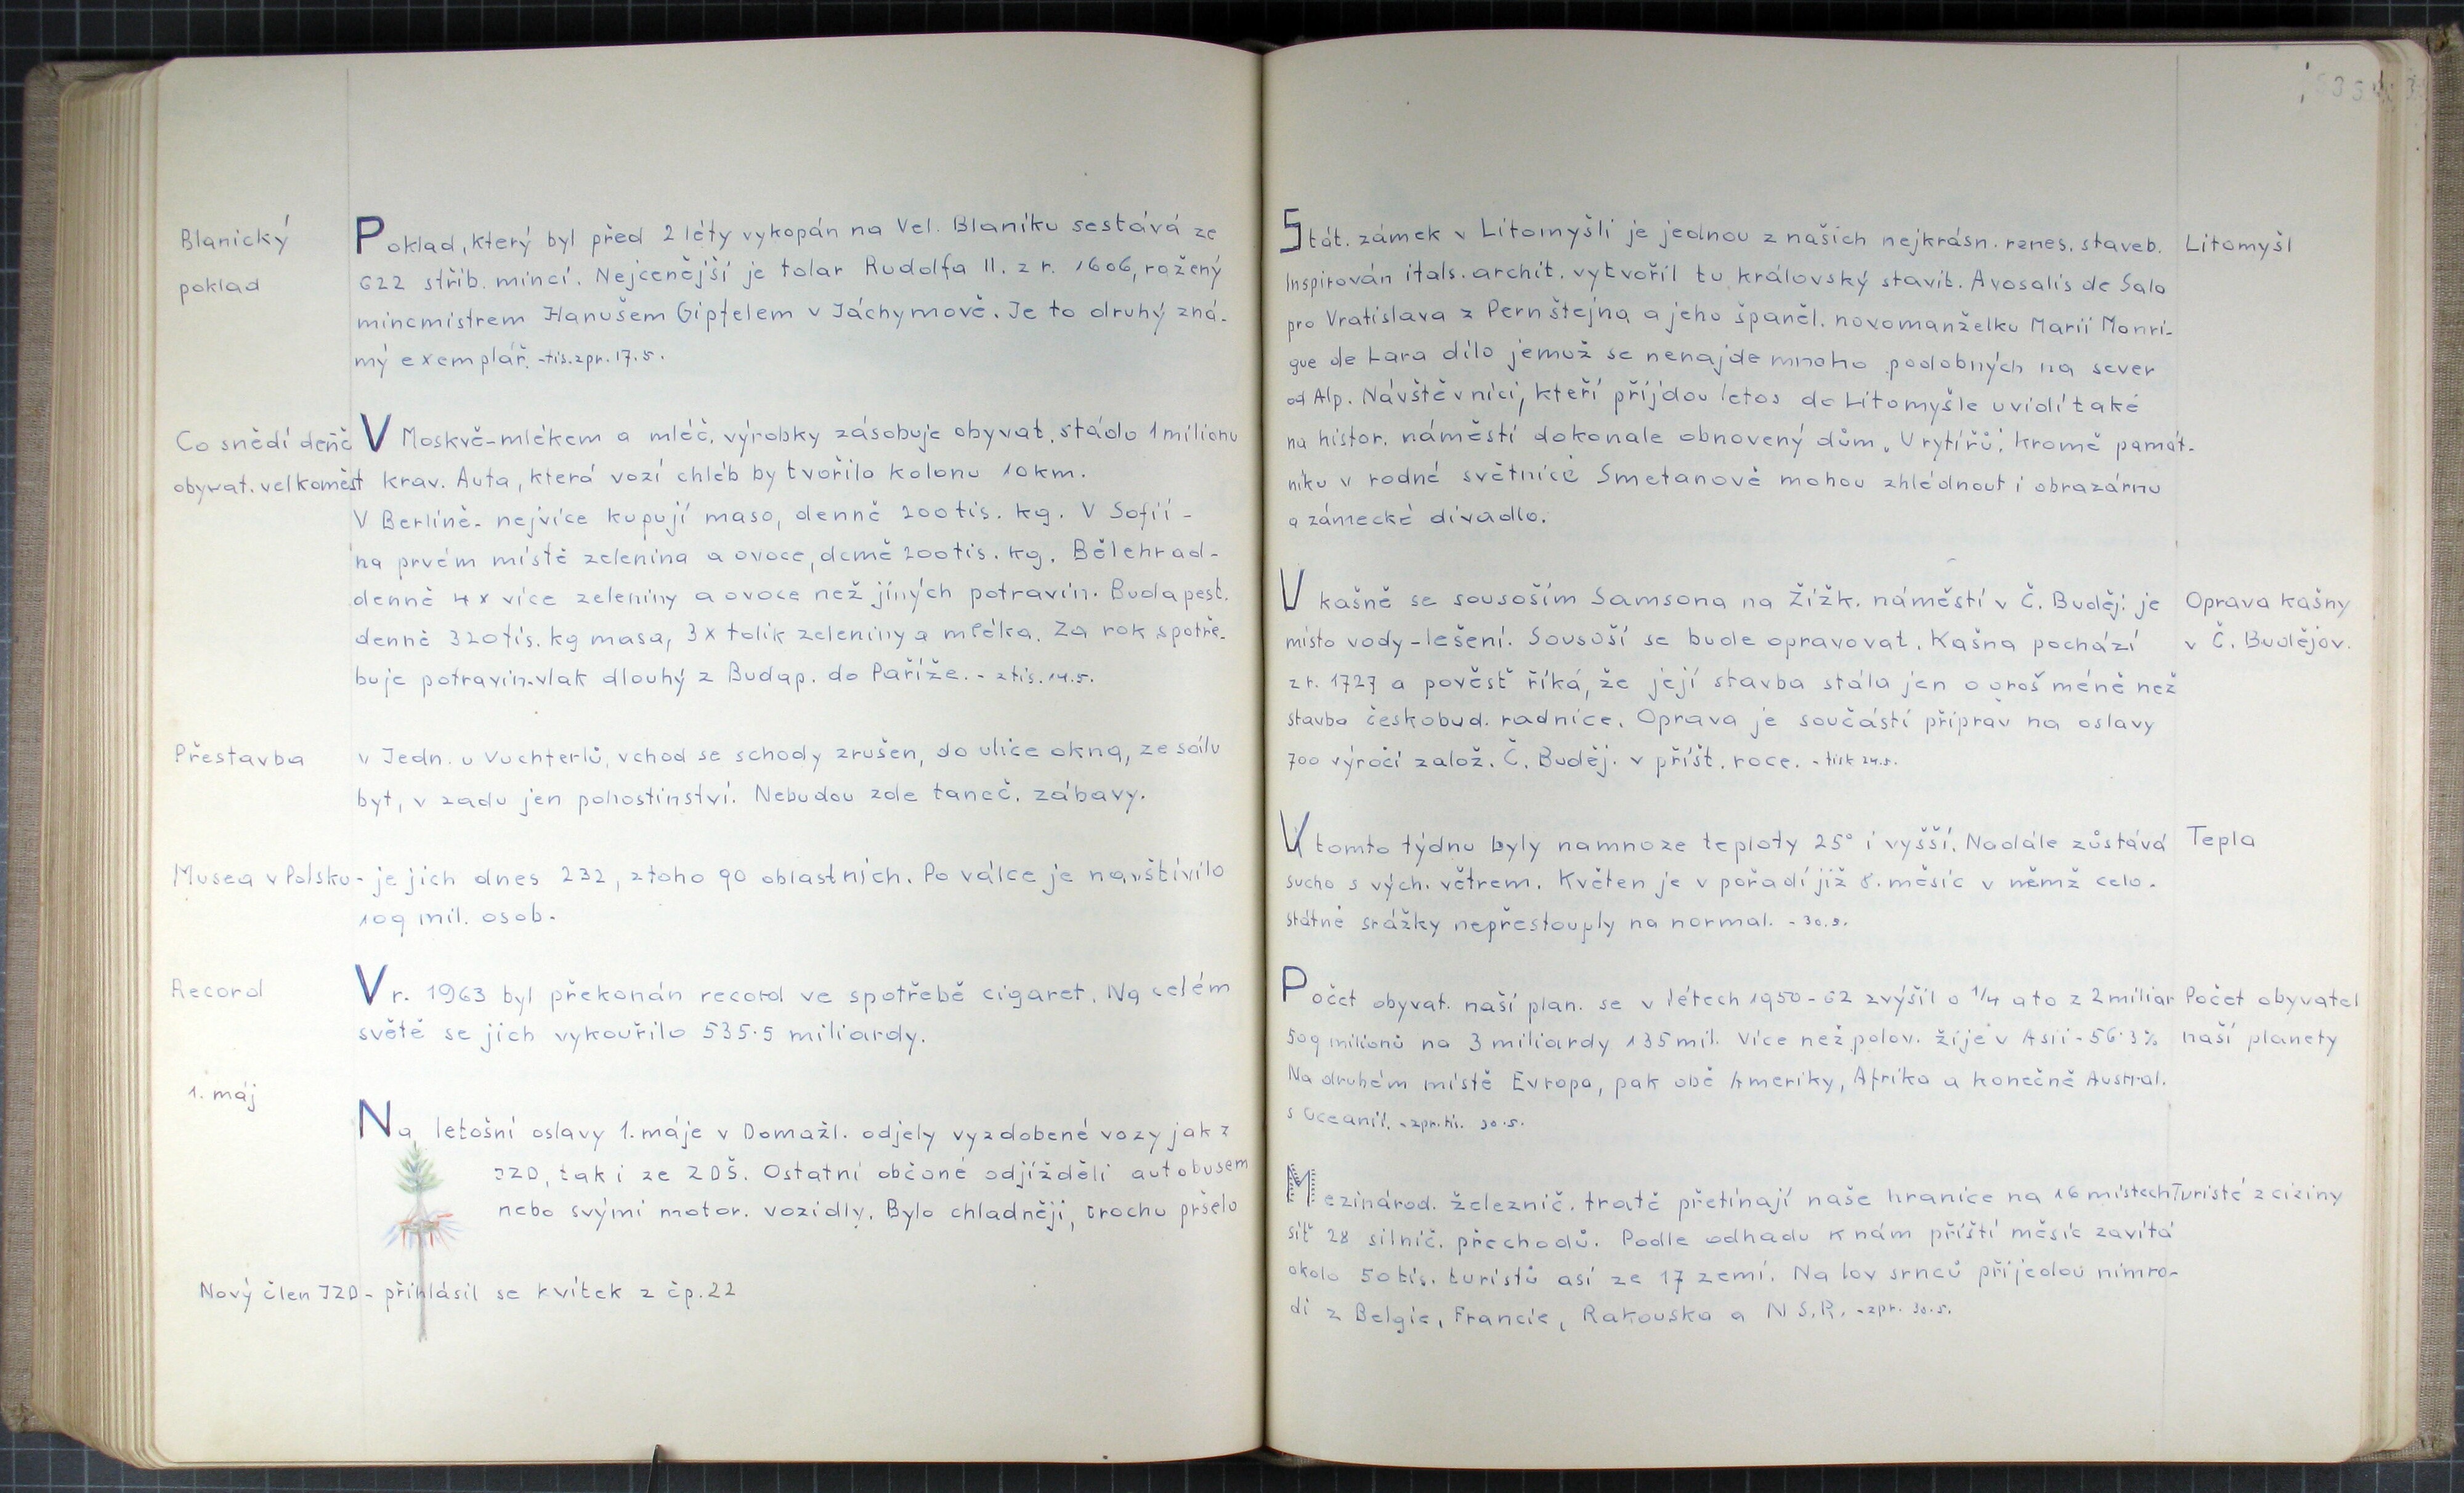 Blanický
poklad
Poklad, který byl před 2 léty vykopán na Vel. Blaníku sestává ze
622 stříb. mincí. Nejcenější je tolar Rudolfa II. z r. 1606, ražený
mincmistrem Hanušem Gipfelem v Jáchymově. Je to druhý zná-
mý exemplář. -tis.zpr. 17.5.
Co snědí deně
obyvat. velkoměst
V Moskvě-mlékem a mléč. výrobky zásobuje obyvat. stádo 1 milionu
krav. Auta, která vozí chléb by tvořila kolonu 10 km.
V Berlíně- nejvíce kupují maso, denně 200 tis. kg. V Sofii -
na prvém místě zelenina a ovoce, deně 200 tis. kg. Bělehrad-
denně 4x více zeleniny a ovoce než jíných potravin. Budapest.
denně 320 tis. kg masa, 3x tolik zeleniny a mléka. Za rok spotře-
buje potravin-vlak dlouhý z Budap. do Paříže. - z tis. 14.5.
Přestavba
v Jedn. u Vuchterlů, vchod se schody zrušen, do ulice okna, ze sálu
byt, v zadu jen pohostinství. Nebudou zde taneč. zábavy.
Musea v Polsku- je jich dnes 232, z toho 90 oblastních. Po válce je navštívilo
109 mil. osob.
Record
V r. 1963 byl překonán record ve spotřebě cigaret. Na celém
světě se jich vykouřilo 535·5 miliardy.
1. máj
Na letošní oslavy 1. máje v Domažl. odjely vyzdobené vozy jak z
JZD, tak i ze ZDŠ. Ostatní občané odjížděli autobusem
nebo svými motor. vozidly. Bylo chladněji, trochu pršelo
Nový člen JZD- přihlásil se Kvítek z čp. 22
Stát. zámek v Litomyšli je jednou z našich nejkrásn. renes. staveb.
Litomyšl
Inspirován itals. archit. vytvořil tu královský stavit. Avosalis de Sala
pro Vratislava z Pernštejna a jeho španěl. novomanželku Marii Monri-
que de Lara dílo jemuž se nenajde mnoho podobných na sever
od Alp. Návštěvníci, kteří příjdou letos do Litomyšle uvidí také
na histor. náměstí dokonale obnovený dům „U rytířů". Kromě památ-
níku v rodné světnice Smetanově mohou zhlédnout i obrazárnu
a zámecké divadlo.
V kašně se sousoším Samsona na Žižk. náměstí v Č. Buděj. je
Oprava kašny
v Č. Budějov.
místo vody-lešení. Sousoší se bude opravovat. Kašna pochází
z r. 1727 a pověsť říká, že její stavba stála jen o groš méně než
stavba českobud. radnice. Oprava je součástí příprav na oslavy
700 výročí založ. Č. Buděj. v příšt. roce. - tisk 24.5.
V tomto týdnu byly namnoze teploty 25° i vyšší. Nadále zůstává
Tepla
sucho s vých. větrem. Květen je v pořadí již 8. měsíc v němž celo-
státně srážky nepřestouply na normal. - 30.5.
Počet obyvat. naší plan. se v létech 1950-62 zvýšil o 1/4 a to z 2 miliar
Počet obyvatel
naší planety
509 milionů na 3 miliardy 135 mil. Více než polov. žije v Asii - 56·3%
Na druhém místě Evropa, pak obě Ameriky, Afrika a konečně Austral.
s Oceanií. - zpr. tis. 30.5.
Mezinárod. železnič. tratě přetínají naše hranice na 16 místech
Turisté z ciziny
síť 28 silnič. přechodů. Podle odhadu k nám příští měsíc zavítá
okolo 50 tis. turistů asi ze 17 zemí. Na lov srnců příjedou nimro-
di z Belgie, Francie, Rakouska a NSR. - zpr. 30.5.